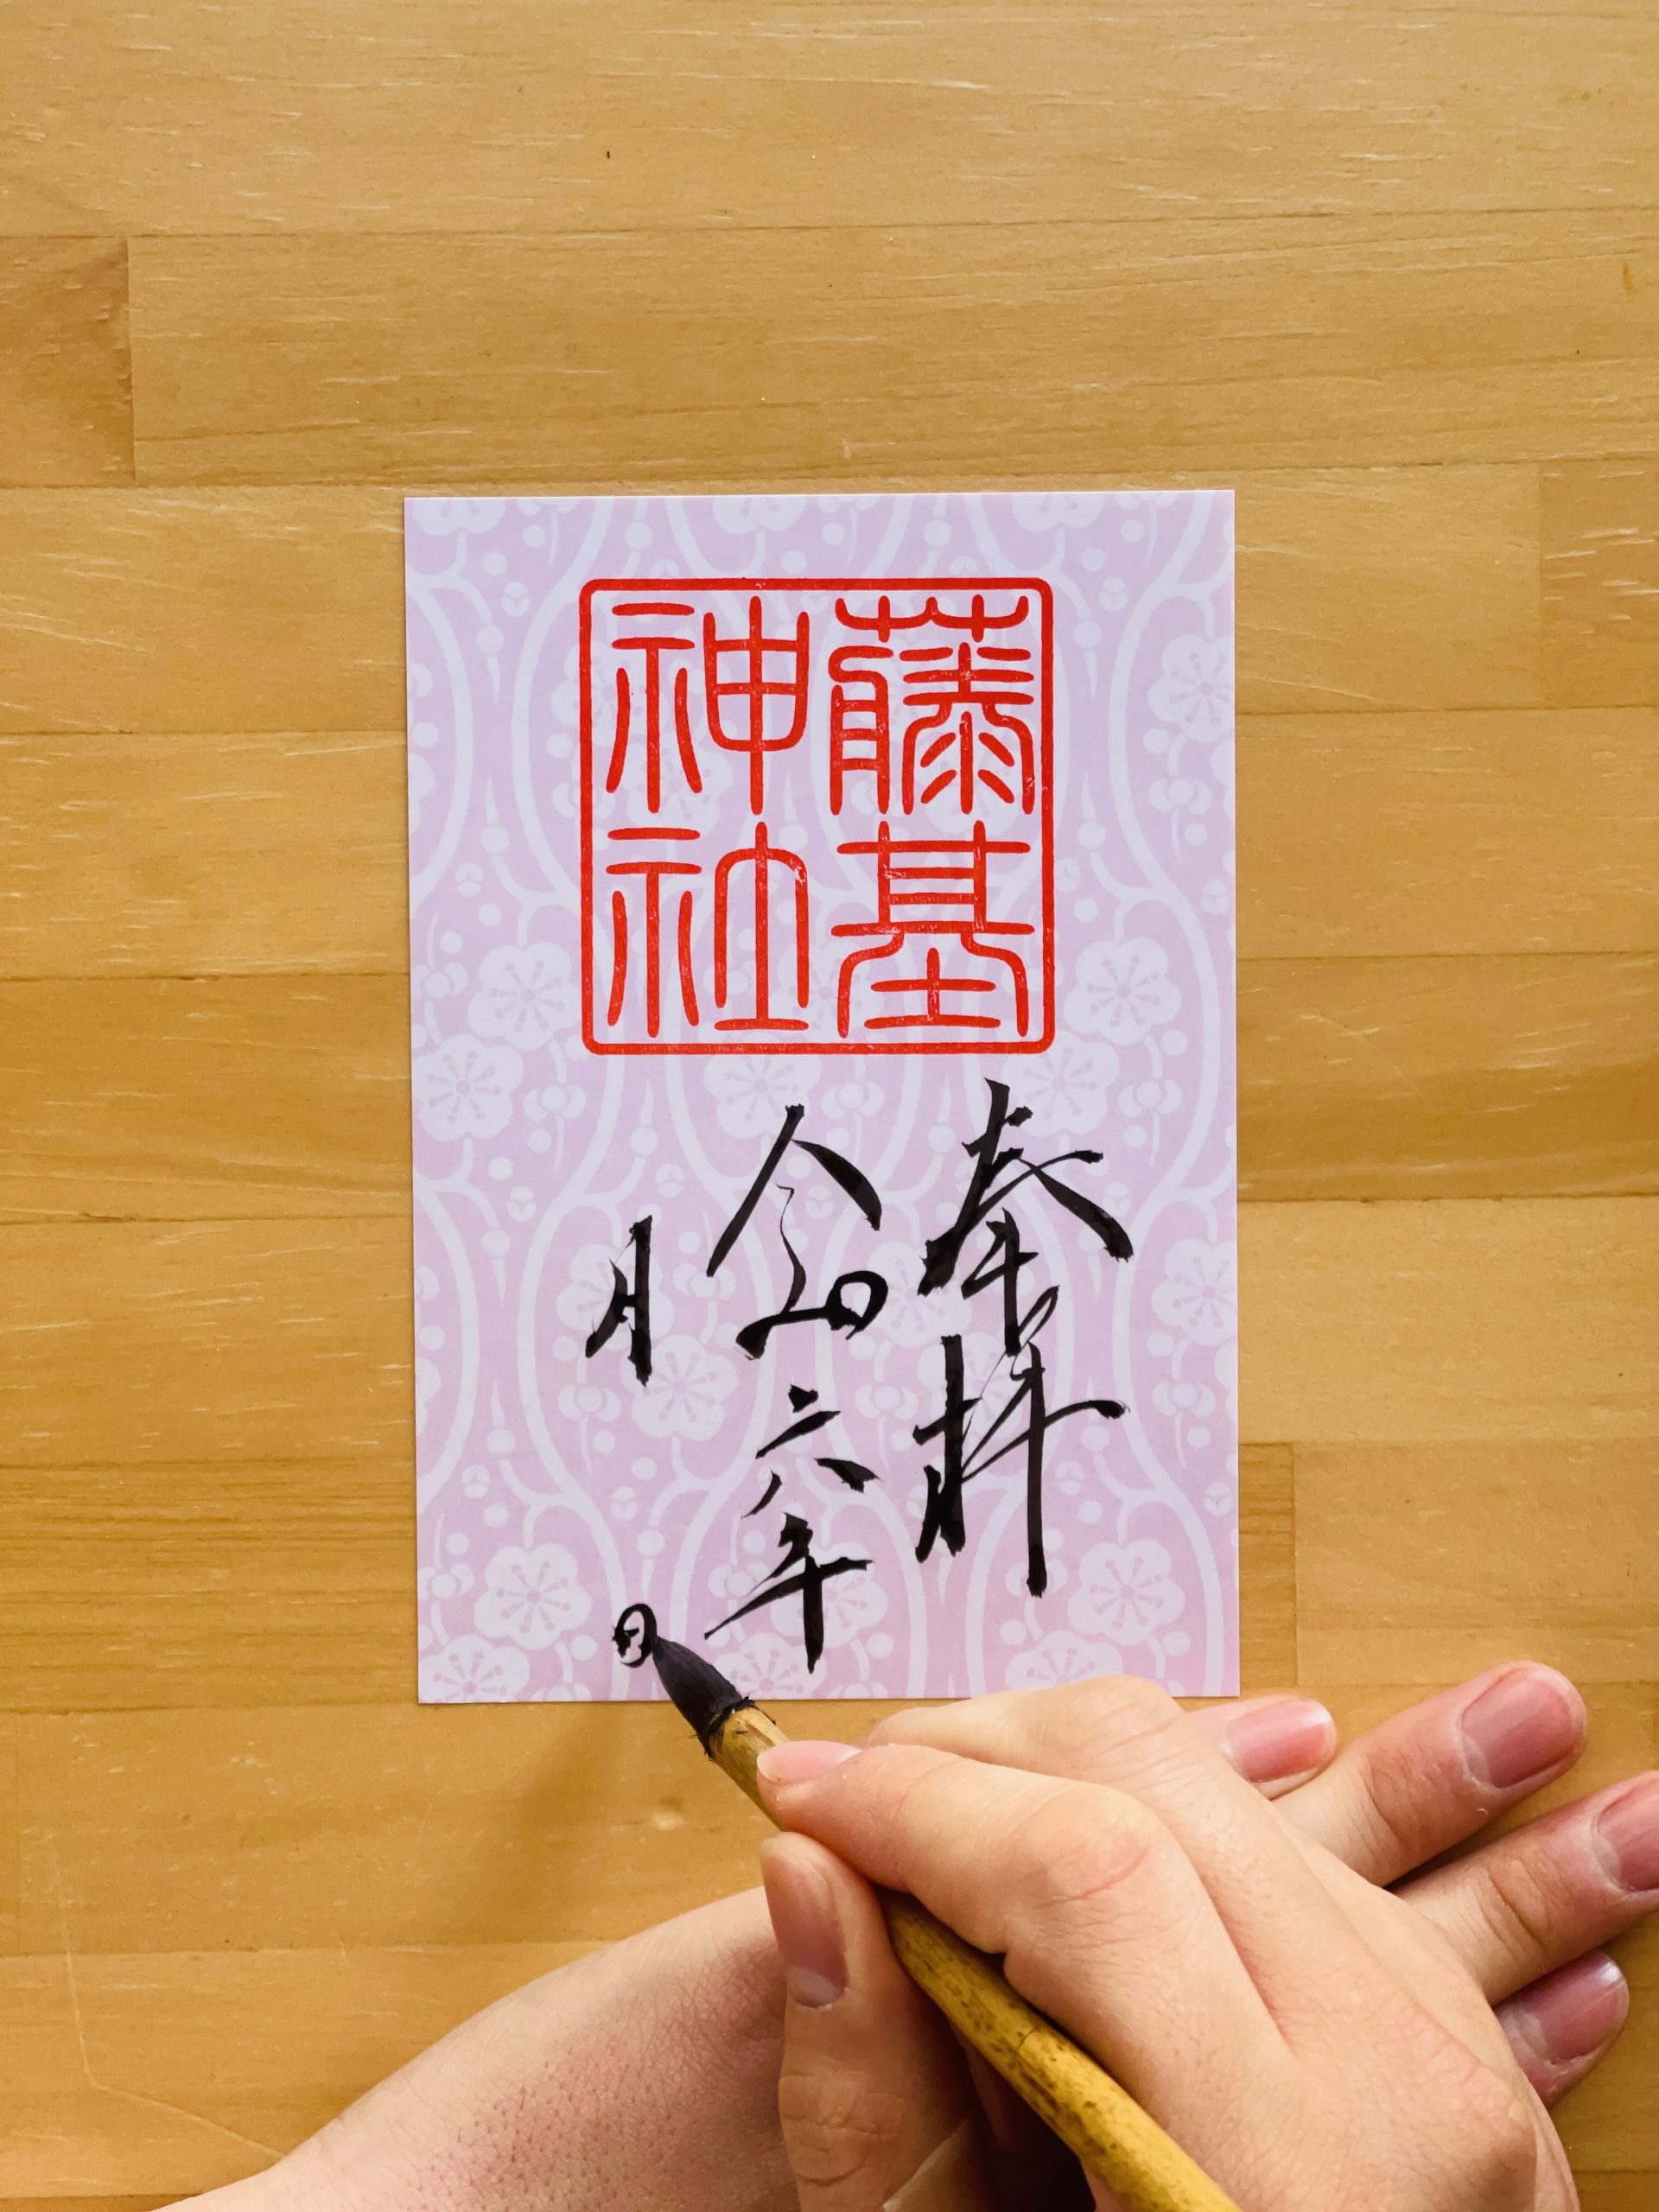 藤基
神社
奉拝
令和六年
月 日